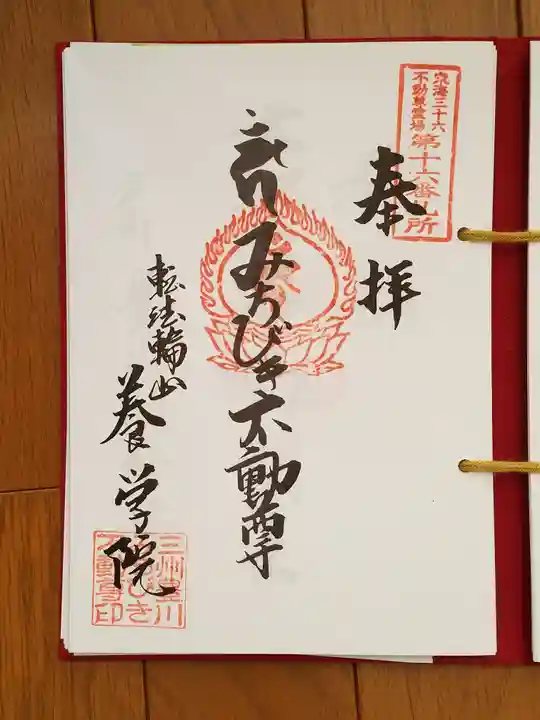 東海三十六
不動尊霊場
第十六番札所
奉拝
豊川みちびき不動尊
転法輪山
養学院
三州豊川
みちびき
不動尊印